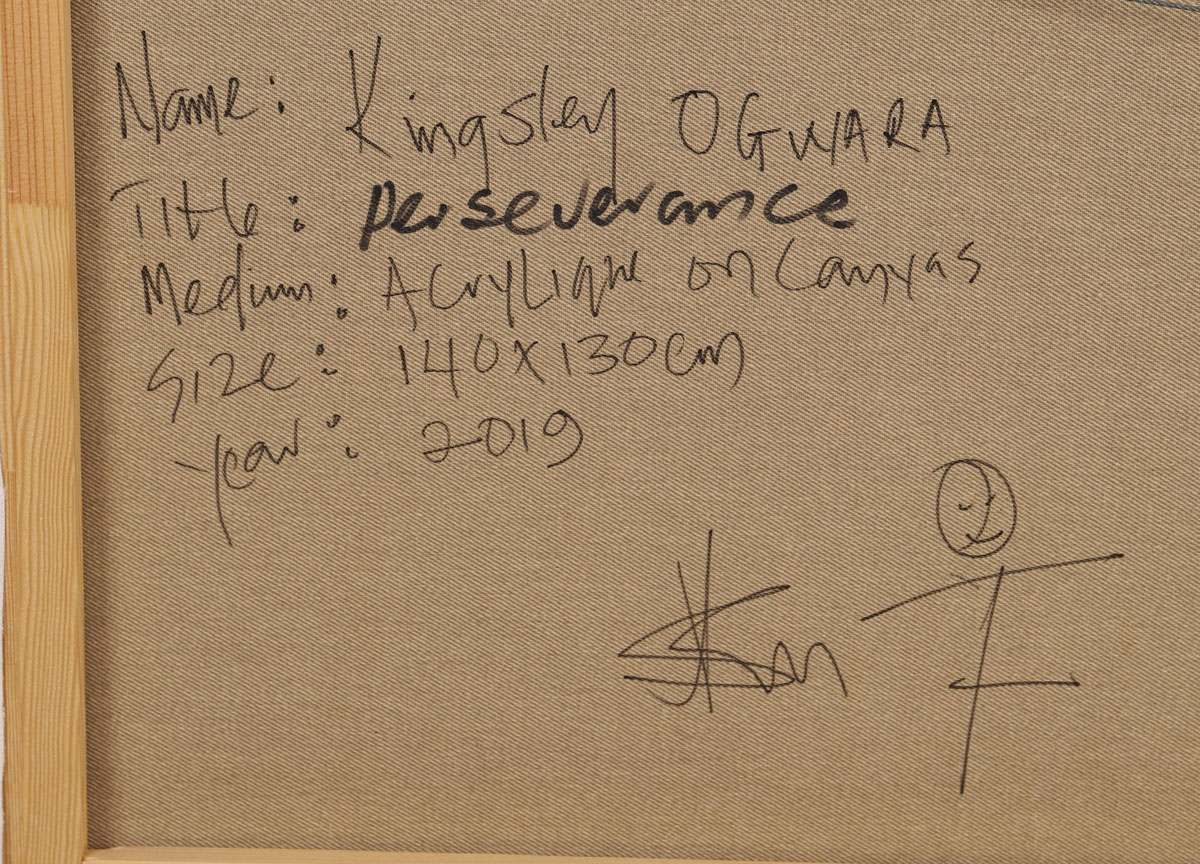 Name: Kingsley OGWARA
Title: Perseverance
Medium: Acrylique on Canvas
Size: 140x130cm
Year: 2019